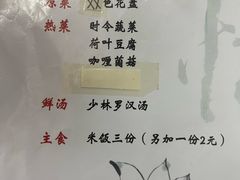 凉菜 XX色花盏
热菜 时令蔬菜
荷叶豆腐
咖喱菌菇
鲜汤 少林罗汉汤
主食 米饭三份（另加一份2元）